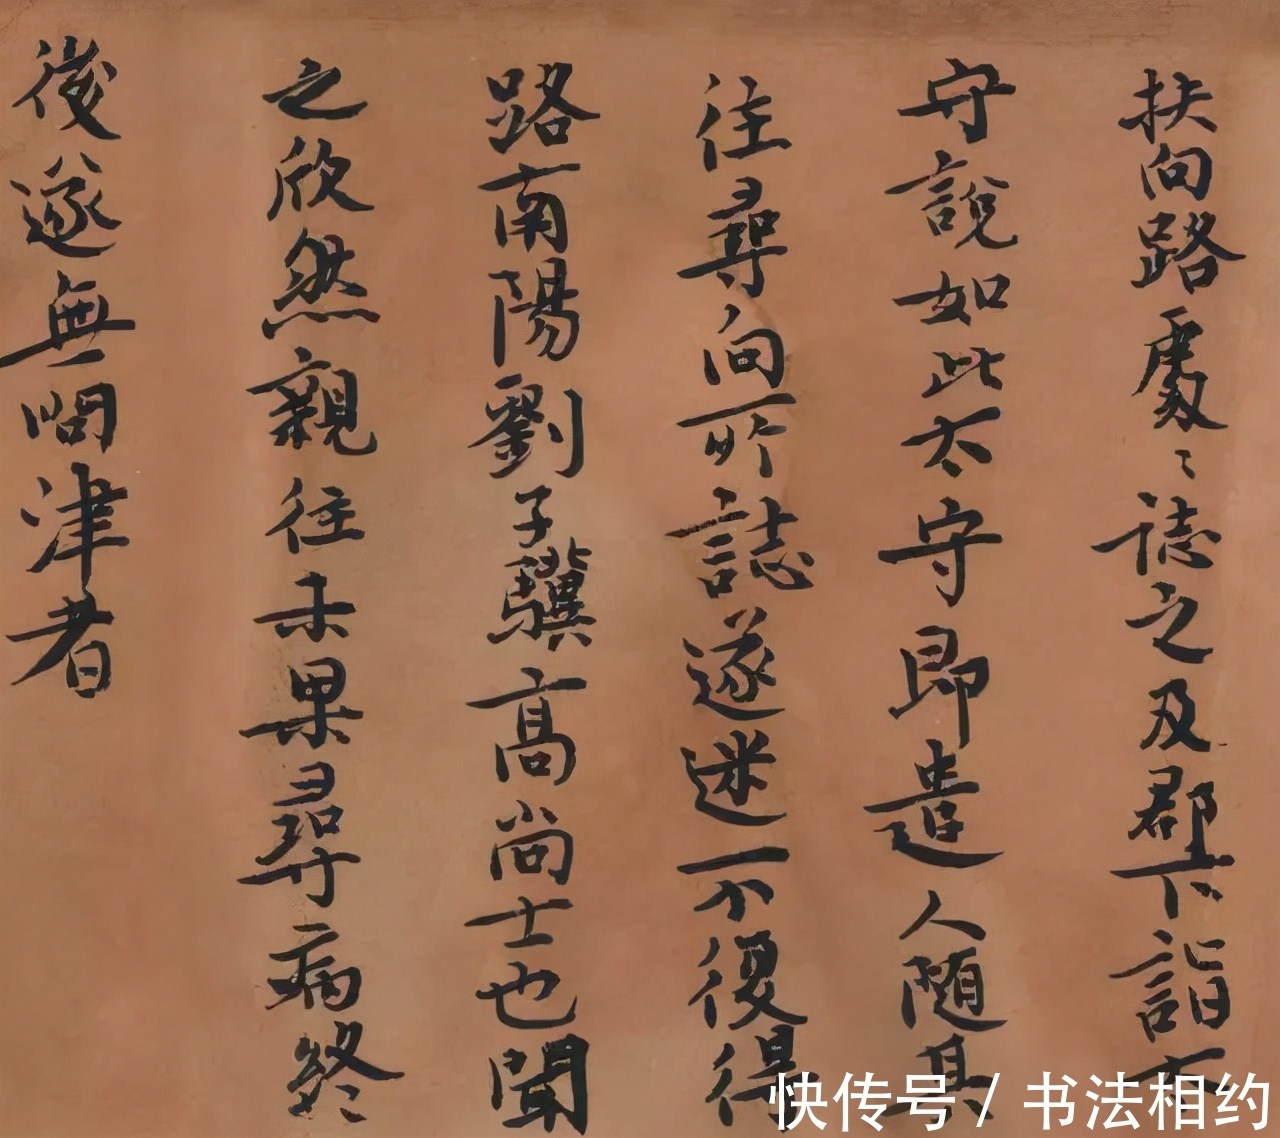 扶向路處〻誌之及郡下詣太
守說如此太守即遣人隨其
往尋向所誌遂迷不復得
路南陽劉子驥高尚士也聞
之欣然親往未果尋病終
後遂無問津者
快传号 / 书法相约